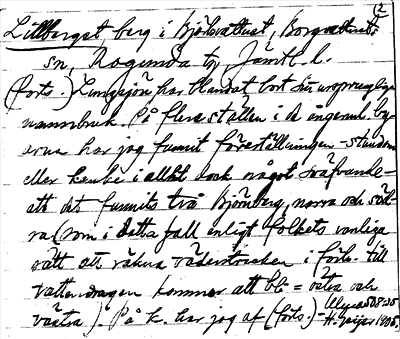 (2
Lillberget berg i Björkvattnet, Borgvattnets
sn, Ragunda tg, Jämtl. l.
(forts.) Lungsjön har blandat bort sin ursprungliga
namnbruk. På flera ställen i de ångerml. by
arna har jag funnit föreställningen - stundom
eller kanske i alltid dock något sväfvande -
att det funnits två Björnberg, norra och söd-
ra (som i detta fall enligt folkets vanliga
sätt att räkna väderstrecken i förh. till
vattendragen kommer att bli = östra och
västra). På k. har jag af (forts.) -
H. Geijer 1908.